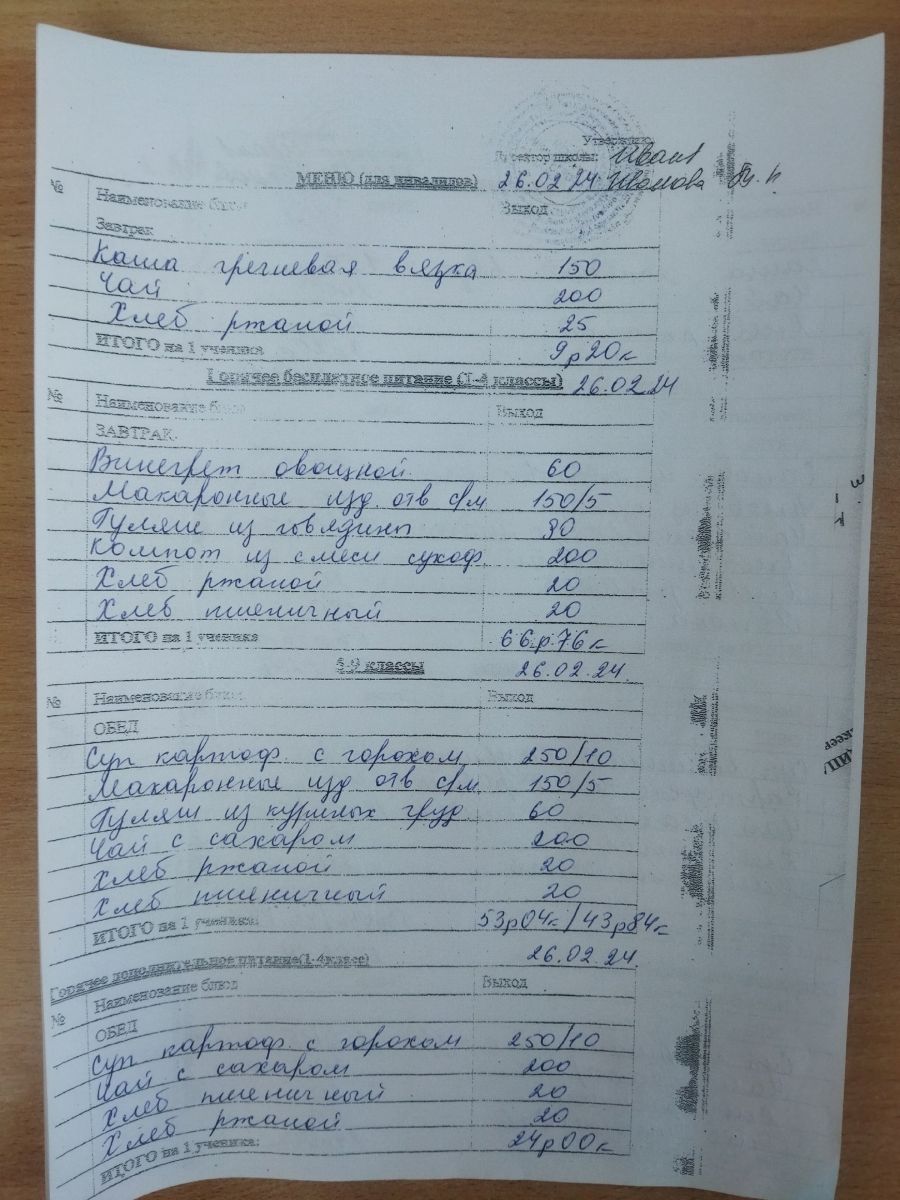 Утверждаю:
Директор школы:
МЕНЮ (для инвалидов) 26.02.24 Иванова
№ Наименование блюд Выход
Завтрак
Каша гречневая вязка 150
Чай 200
Хлеб ржаной 25
ИТОГО на 1 ученика 9р20к
Горячее бесплатное питание (1-4 классы) 26.02.24
№ Наименование блюд Выход
ЗАВТРАК
Винегрет овощной 60
Макаронные изд отв с/м 150/5
Гуляш из говядины 90
Компот из смеси сухоф 200
Хлеб ржаной 20
Хлеб пшеничный 20
ИТОГО на 1 ученика 66р76к
5-9 классы 26.02.24
№ Наименование блюд Выход
ОБЕД
Суп картоф. с горохом 250/10
Макаронные изд отв с/м 150/5
Гуляш из куриных груд 60
Чай с сахаром 200
Хлеб ржаной 20
Хлеб пшеничный 20
ИТОГО на 1 ученика: 53р04к/43р84к
26.02.24
Горячее дополнительное питание(1-4класс)
№ Наименование блюд Выход
ОБЕД
Суп картоф. с горохом 250/10
Чай с сахаром 200
Хлеб пшеничный 20
Хлеб ржаной 20
ИТОГО на 1 ученика: 24р00к